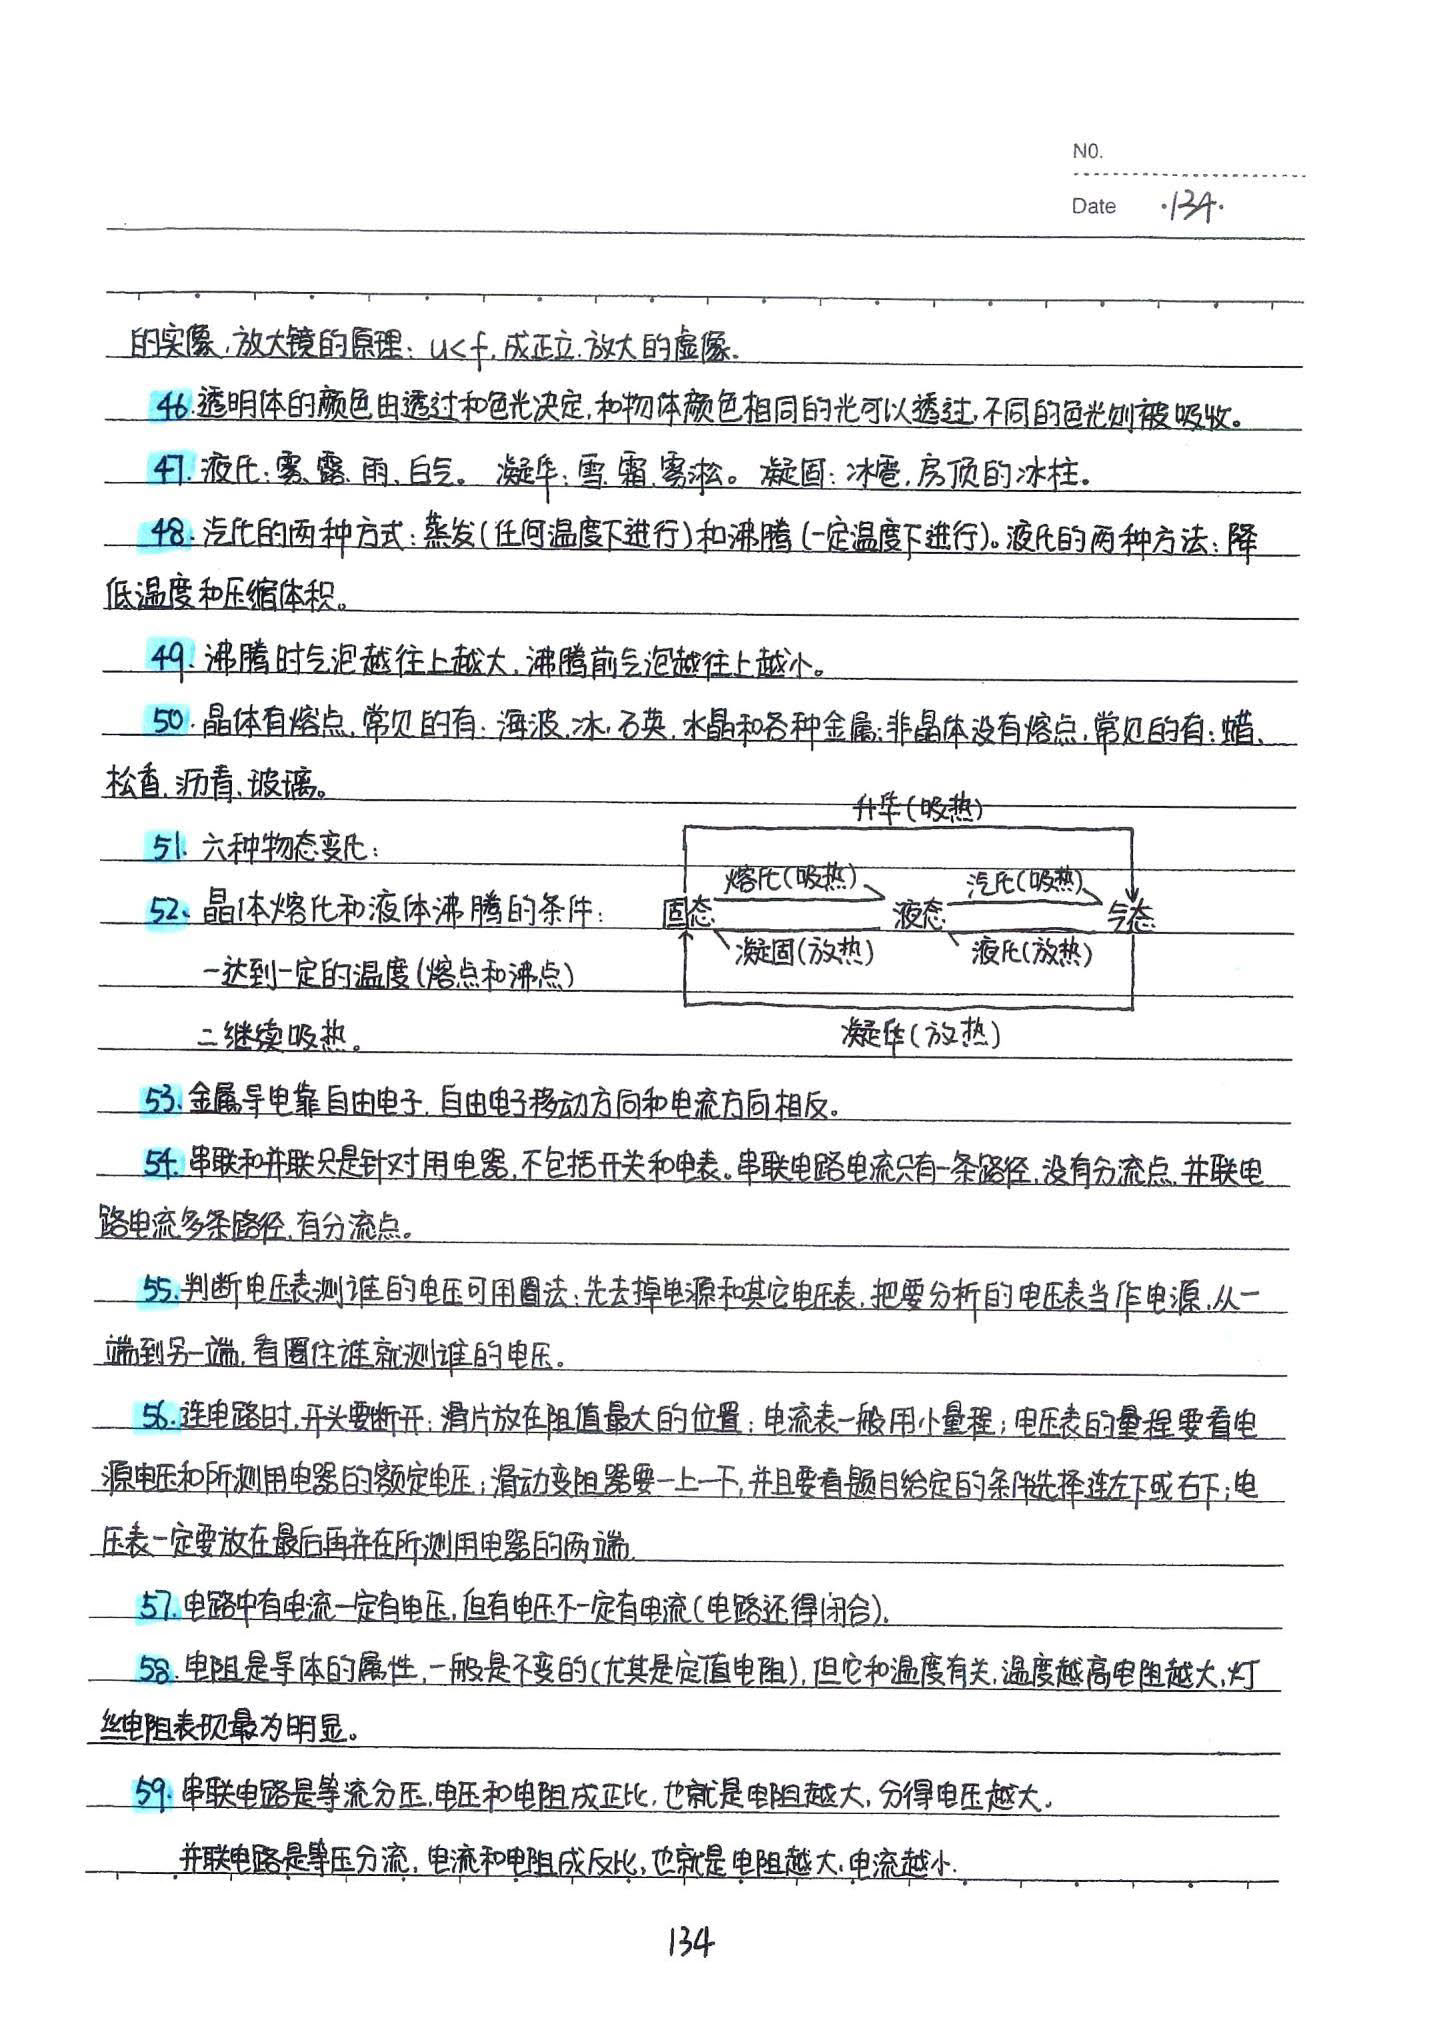 NO.
Date ·134·
的实像,放大镜的原理:u<f,成正立、放大的虚像.
46.透明体的颜色由透过和色光决定,和物体颜色相同的光可以透过,不同的色光则被吸收。
47.液化:雾、露、雨、白气。凝华:雪、霜、雾淞。凝固:冰雹,房顶的冰柱。
48.汽化的两种方式:蒸发(任何温度下进行)和沸腾(一定温度下进行)。液化的两种方法:降
低温度和压缩体积。
49.沸腾时气泡越往上越大,沸腾前气泡越往上越小。
50.晶体有熔点,常见的有:海波,冰,石英,水晶和各种金属;非晶体没有熔点,常见的有:蜡、
松香、沥青、玻璃。
升华(吸热)
51.六种物态变化:
熔化(吸热) 汽化(吸热)
52、晶体熔化和液体沸腾的条件:
固态 液态 气态
凝固(放热) 液化(放热)
一达到一定的温度(熔点和沸点)
二继续吸热。
凝华(放热)
53.金属导电靠自由电子,自由电子移动方向和电流方向相反。
54.串联和并联只是针对用电器,不包括开关和电表。串联电路电流只有一条路径,没有分流点,并联电
路电流多条路径,有分流点。
55.判断电压表测谁的电压可用圈法:先去掉电源和其它电压表,把要分析的电压表当作电源,从一
端到另一端,看圈住谁就测谁的电压。
56.连电路时,开头要断开;滑片放在阻值最大的位置;电流表一般用小量程;电压表的量程要看电
源电压和所测用电器的额定电压;滑动变阻器要一上一下,并且要看题目给定的条件选择连左下或右下;电
压表一定要放在最后再并在所测用电器的两端.
57.电路中有电流一定有电压,但有电压不一定有电流(电路还得闭合).
58.电阻是导体的属性,一般是不变的(尤其是定值电阻),但它和温度有关,温度越高电阻越大,灯
丝电阻表现最为明显。
59.串联电路是等流分压,电压和电阻成正比,也就是电阻越大,分得电压越大.
并联电路是等压分流,电流和电阻成反比,也就是电阻越大,电流越小.
134